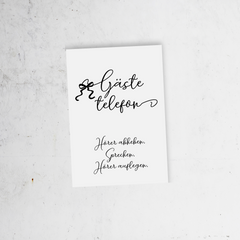 Gäste
telefon
Hörer abheben.
Sprechen.
Hörer auflegen.